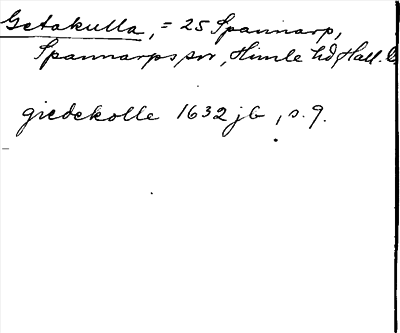 Getakulla, = 25 Spannarp,
Spannarps sn, Himle hd, Hall.
giedekolle 1632 jb, s. 9.